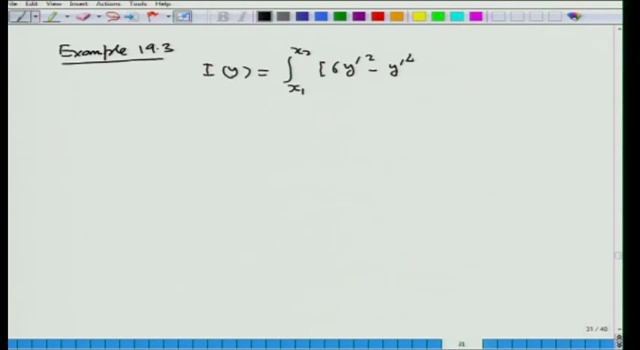 File Edit View Insert Actions Tools Help
Example 19.3
I(y) = ∫_{x₁}^{x₂} [6y'² - y'⁴
31 / 40